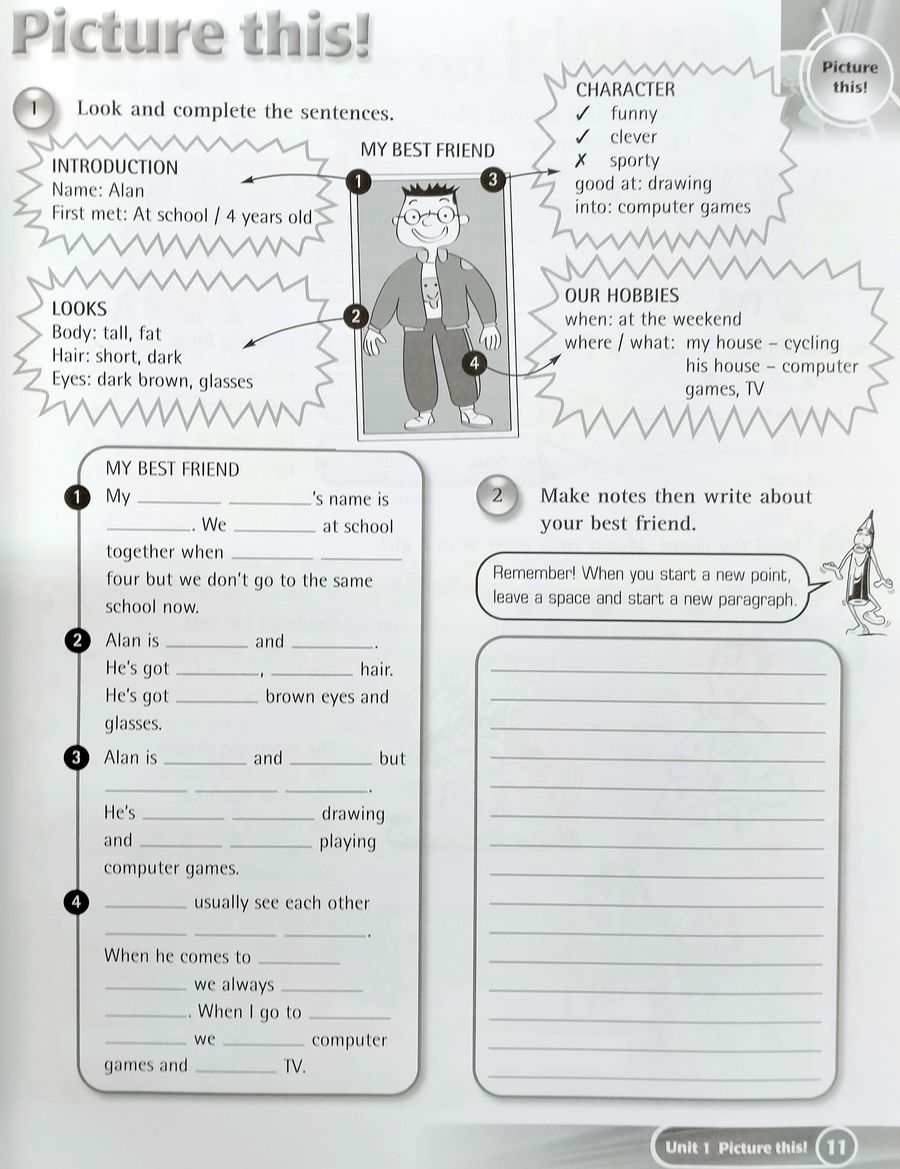 Picture this!
Picture
this!
1 Look and complete the sentences.
INTRODUCTION
Name: Alan
First met: At school / 4 years old
MY BEST FRIEND
1
3
2
4
CHARACTER
✓ funny
✓ clever
✗ sporty
good at: drawing
into: computer games
LOOKS
Body: tall, fat
Hair: short, dark
Eyes: dark brown, glasses
OUR HOBBIES
when: at the weekend
where / what: my house – cycling
his house – computer
games, TV
MY BEST FRIEND
1 My ________ ________'s name is
________. We ________ at school
together when ________ ________
four but we don't go to the same
school now.
2 Alan is ________ and ________.
He's got ________, ________ hair.
He's got ________ brown eyes and
glasses.
3 Alan is ________ and ________ but
________ ________ ________.
He's ________ ________ drawing
and ________ ________ playing
computer games.
4 ________ usually see each other
________ ________ ________.
When he comes to ________
________ we always ________
________. When I go to ________
________ we ________ computer
games and ________ TV.
2 Make notes then write about
your best friend.
Remember! When you start a new point,
leave a space and start a new paragraph.
Unit 1 Picture this! 11